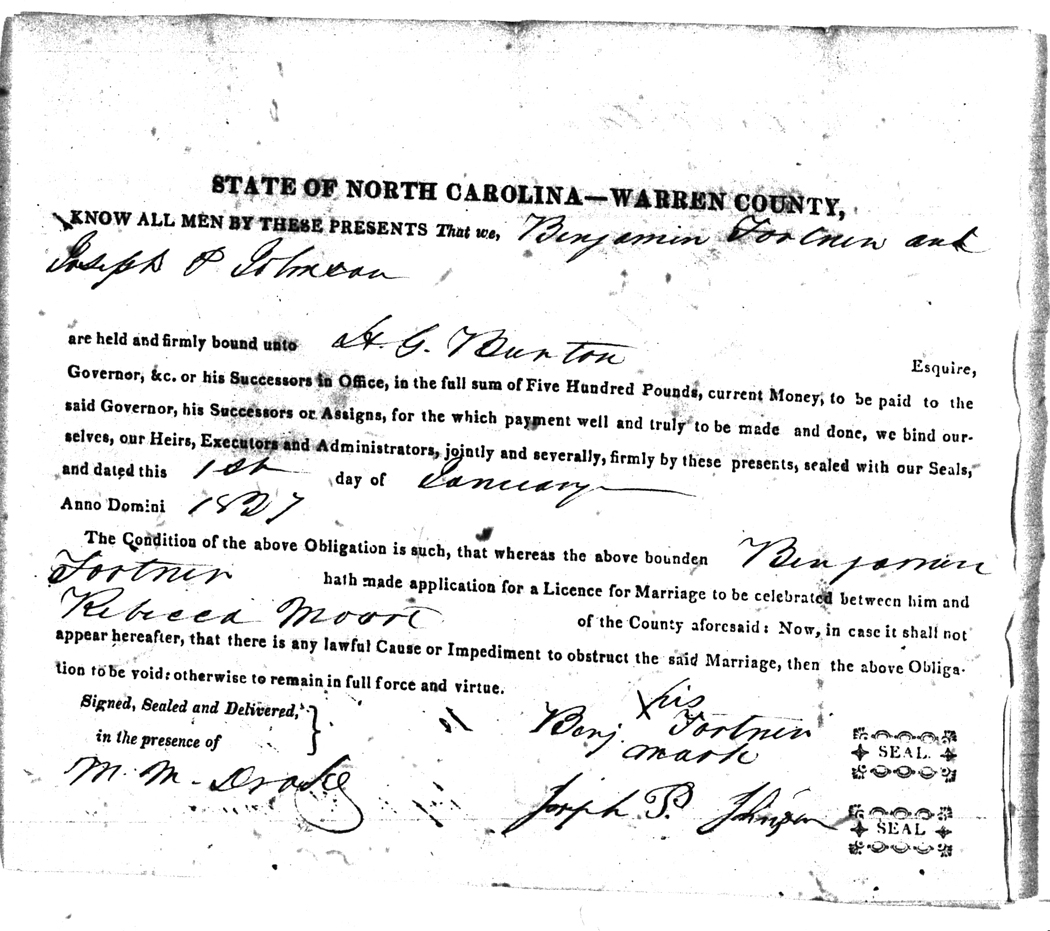 STATE OF NORTH CAROLINA—WARREN COUNTY,
KNOW ALL MEN BY THESE PRESENTS That we, Benjamin Fortner and
Joseph P Johnson
are held and firmly bound unto H. G. Burton Esquire,
Governor, &c. or his Successors in Office, in the full sum of Five Hundred Pounds, current Money, to be paid to the
said Governor, his Successors or Assigns, for the which payment well and truly to be made and done, we bind our-
selves, our Heirs, Executors and Administrators, jointly and severally, firmly by these presents, sealed with our Seals,
and dated this 1st day of January
Anno Domini 1827
The Condition of the above Obligation is such, that whereas the above bounden Benjamin
Fortner hath made application for a Licence for Marriage to be celebrated between him and
Rebecca Moore of the County aforesaid: Now, in case it shall not
appear hereafter, that there is any lawful Cause or Impediment to obstruct the said Marriage, then the above Obliga-
tion to be void: otherwise to remain in full force and virtue.
Signed, Sealed and Delivered,
in the presence of
M. M. Drake
his
Benj X Fortner SEAL.
mark
Joseph P. Johnson SEAL